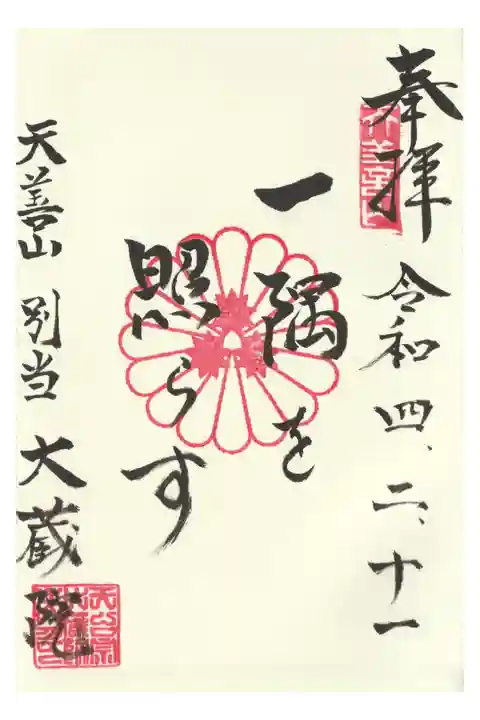 奉拝
令和四、二、十一
一隅を
照らす
天善山 別当 大蔵院